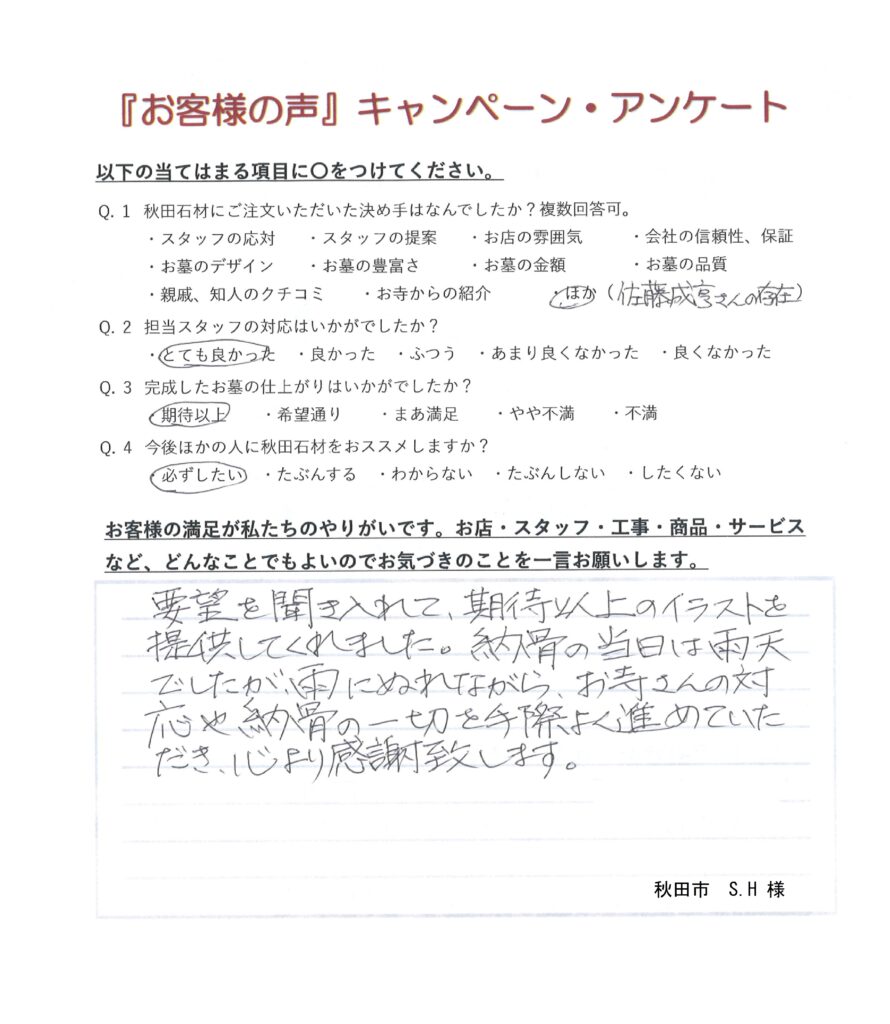 『お客様の声』キャンペーン・アンケート
以下の当てはまる項目に〇をつけてください。
Q. 1 秋田石材にご注文いただいた決め手はなんでしたか？複数回答可。
・スタッフの応対 ・スタッフの提案 ・お店の雰囲気 ・会社の信頼性、保証
・お墓のデザイン ・お墓の豊富さ ・お墓の金額 ・お墓の品質
・親戚、知人のクチコミ ・お寺からの紹介 ・ほか（佐藤成亨さんの存在）
Q. 2 担当スタッフの対応はいかがでしたか？
・とても良かった ・良かった ・ふつう ・あまり良くなかった ・良くなかった
Q. 3 完成したお墓の仕上がりはいかがでしたか？
・期待以上 ・希望通り ・まあ満足 ・やや不満 ・不満
Q. 4 今後ほかの人に秋田石材をおススメしますか？
・必ずしたい ・たぶんする ・わからない ・たぶんしない ・したくない
お客様の満足が私たちのやりがいです。お店・スタッフ・工事・商品・サービス
など、どんなことでもよいのでお気づきのことを一言お願いします。
要望を聞き入れて、期待以上のイラストを
提供してくれました。納骨の当日は雨天
でしたが、雨にぬれながら、お寺さんの対
応や納骨の一切を手際よく進めていた
だき、心より感謝致します。
秋田市 S.H 様